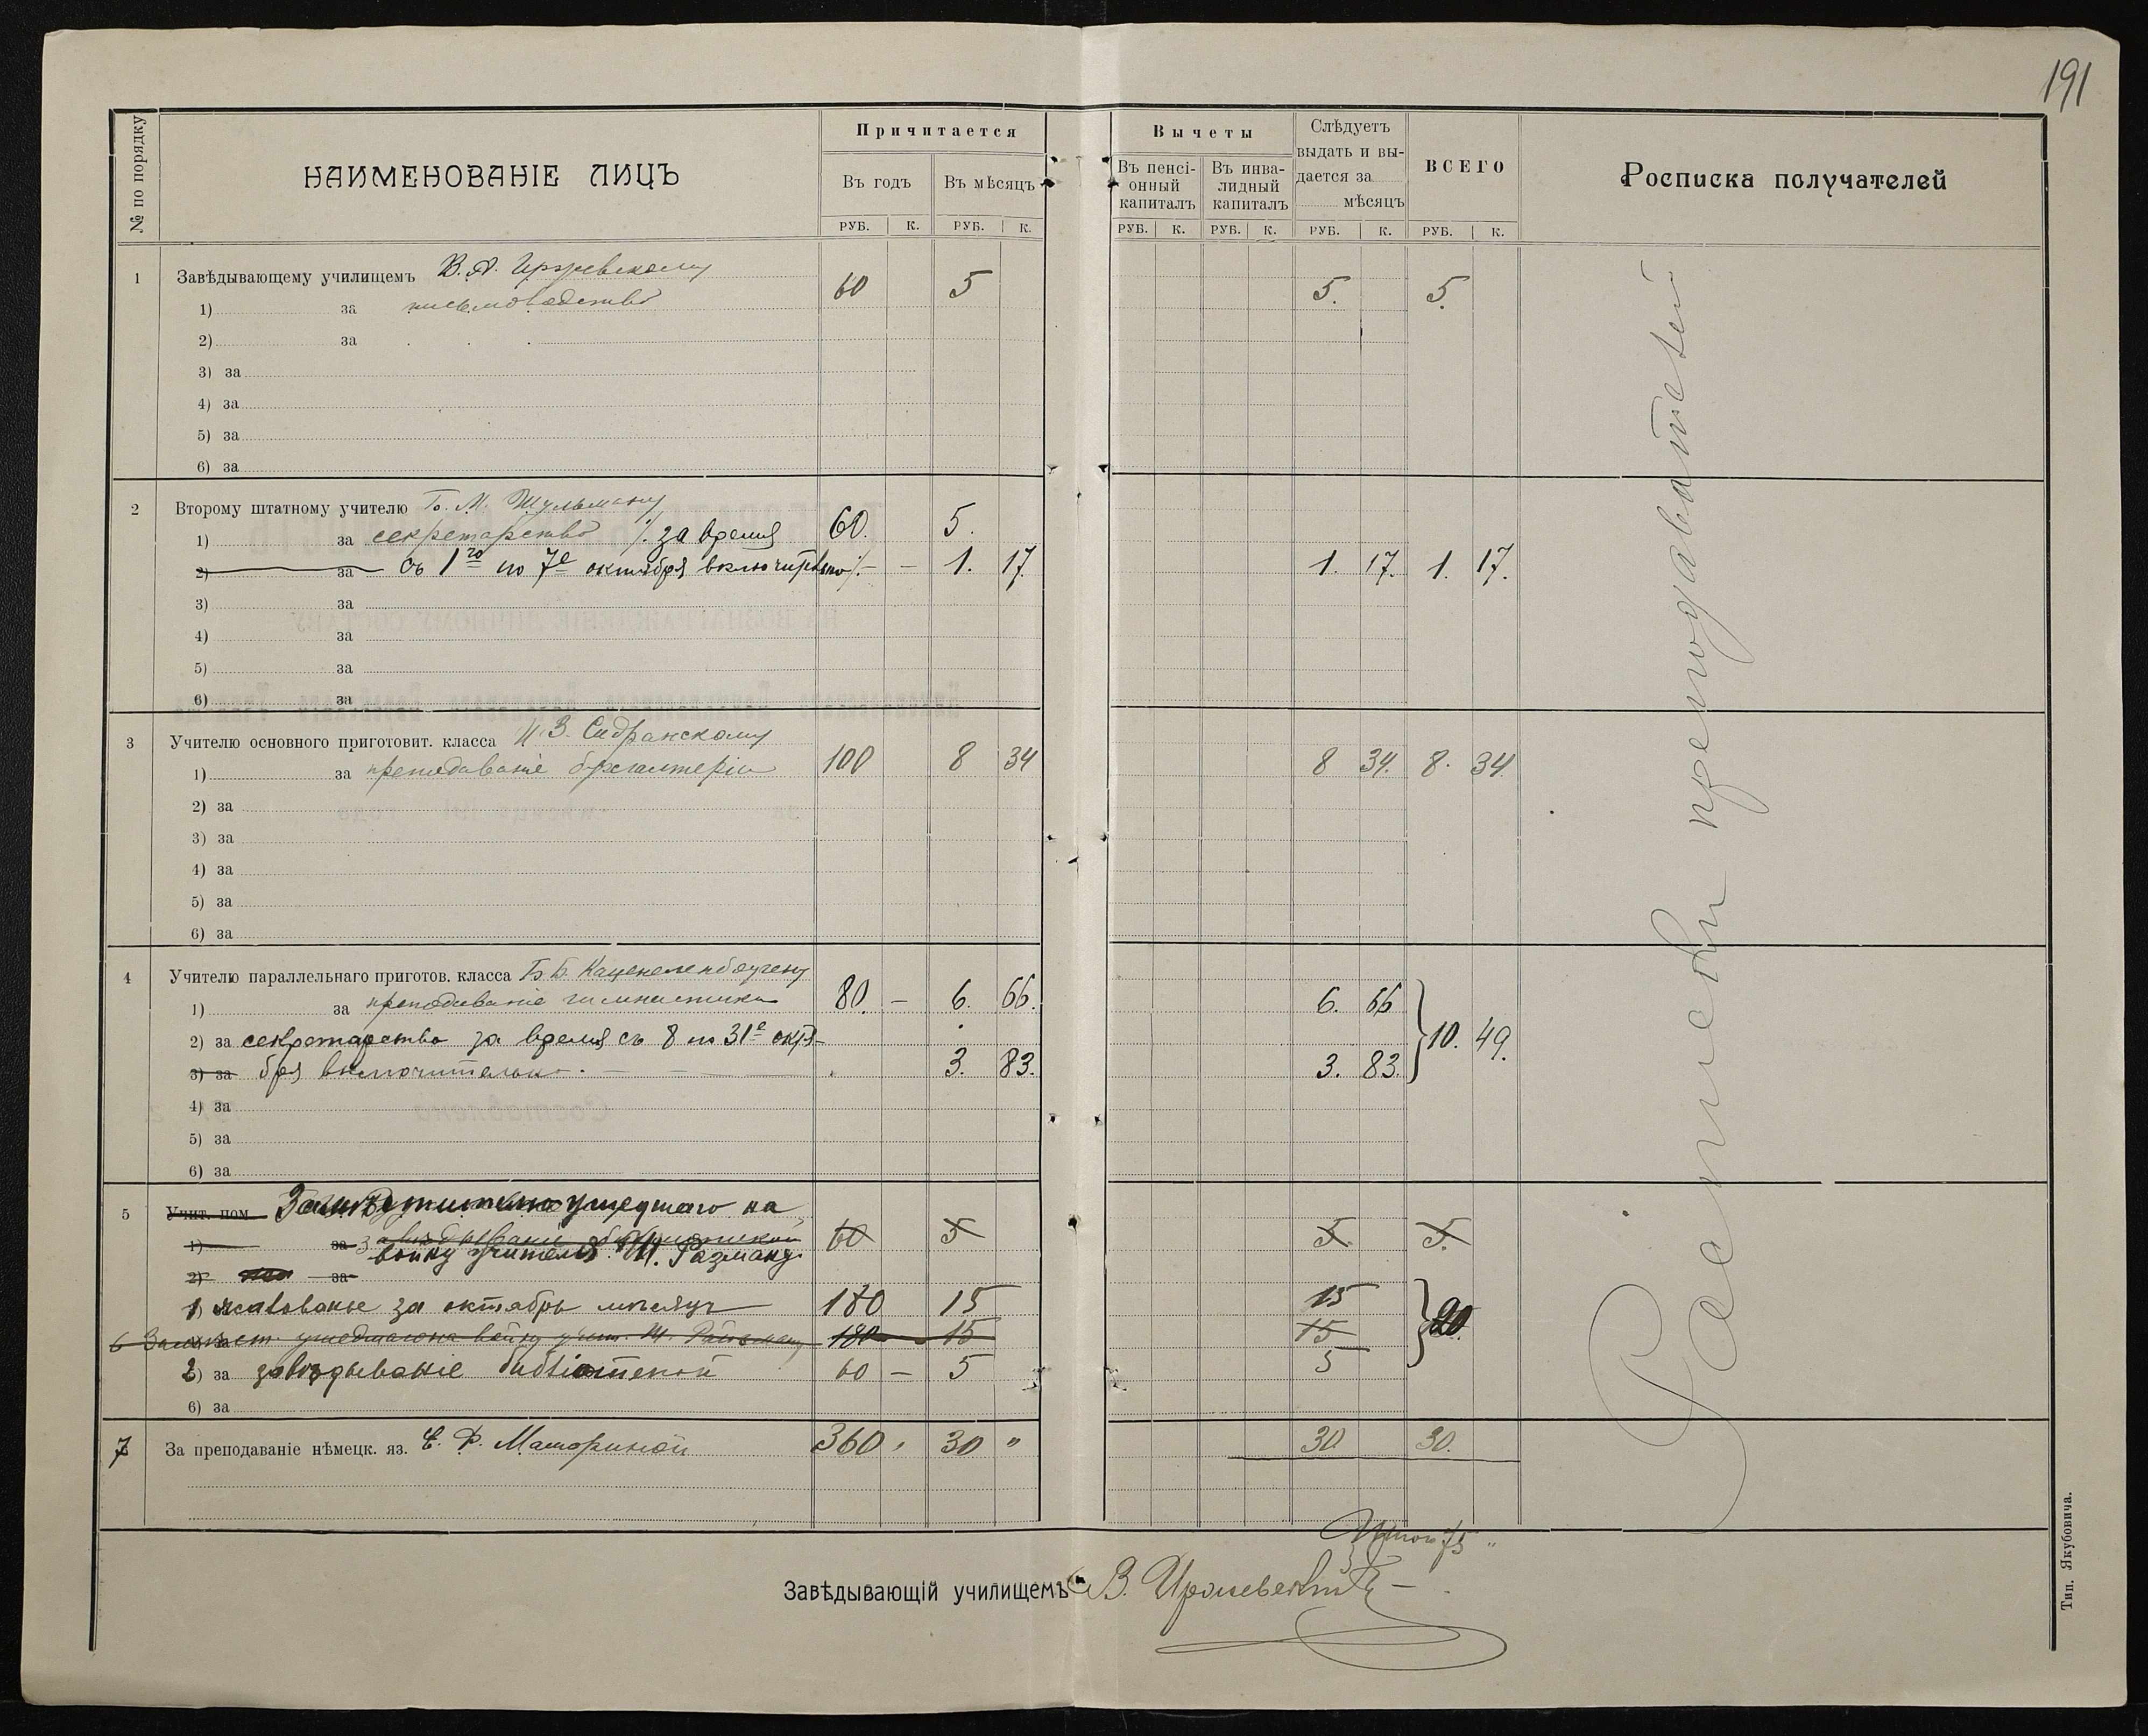 191
№ по порядку
НАИМЕНОВАНІЕ ЛИЦЪ
Причитается
Въ годъ
Въ мѣсяцъ
РУБ. К. РУБ. К.
Вычеты
Въ пенсі-
онный
капиталъ
Въ инва-
лидный
капиталъ
Слѣдуетъ
выдать и вы-
дается за
мѣсяцъ
ВСЕГО
Росписка получателей
РУБ. К. РУБ. К. РУБ. К. РУБ. К.
1 Завѣдывающему училищемъ В. А.
1) за письмоводство 60 5 5. 5.
2) за
3) за
4) за
5) за
6) за
2 Второму штатному учителю Б. М. Шульману
1) за секретарство ·/. за время 60. 5.
2) за съ 1го по 7е октября включительно ·/. – – 1. 17. 1. 17. 1. 17.
3) за
4) за
5) за
6) за
3 Учителю основного приготовит. класса И. З. Сидранскому
1) за преподаваніе бухгалтеріи 100 8 34 8 34. 8. 34
2) за
3) за
4) за
5) за
6) за
4 Учителю параллельнаго приготов. класса Б. Б. Каценеленбогену
1) за преподаваніе гимнастики 80. – 6. 66. 6. 66
2) за секретарство за время съ 8 по 31е октя-
10. 49.
3) за бря включительно. 3. 83. 3. 83.
4) за
5) за
6) за
5 Учит. пом. ушедшаго на
1) за завѣдываніе библіотекой 60 5 5. 5.
войну учителя Ш.
2) за
1) жалованье за октябрь мѣсяцъ 180 15 15
20
6 Замѣст. ушедшаго на войну учит. Ш. 180 – 15 15
2) за завѣдываніе библіотекой 60 – 5 5
6) за
7 За преподаваніе нѣмецк. яз. Е. Ф. 360 30 " 30 30.
Росписки преподавателей
Итого 75 "
Завѣдывающій училищемъ В.
Тип. Якубовича.